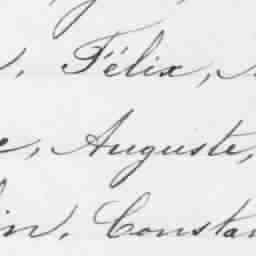 Félix,
Auguste,
in, Constan